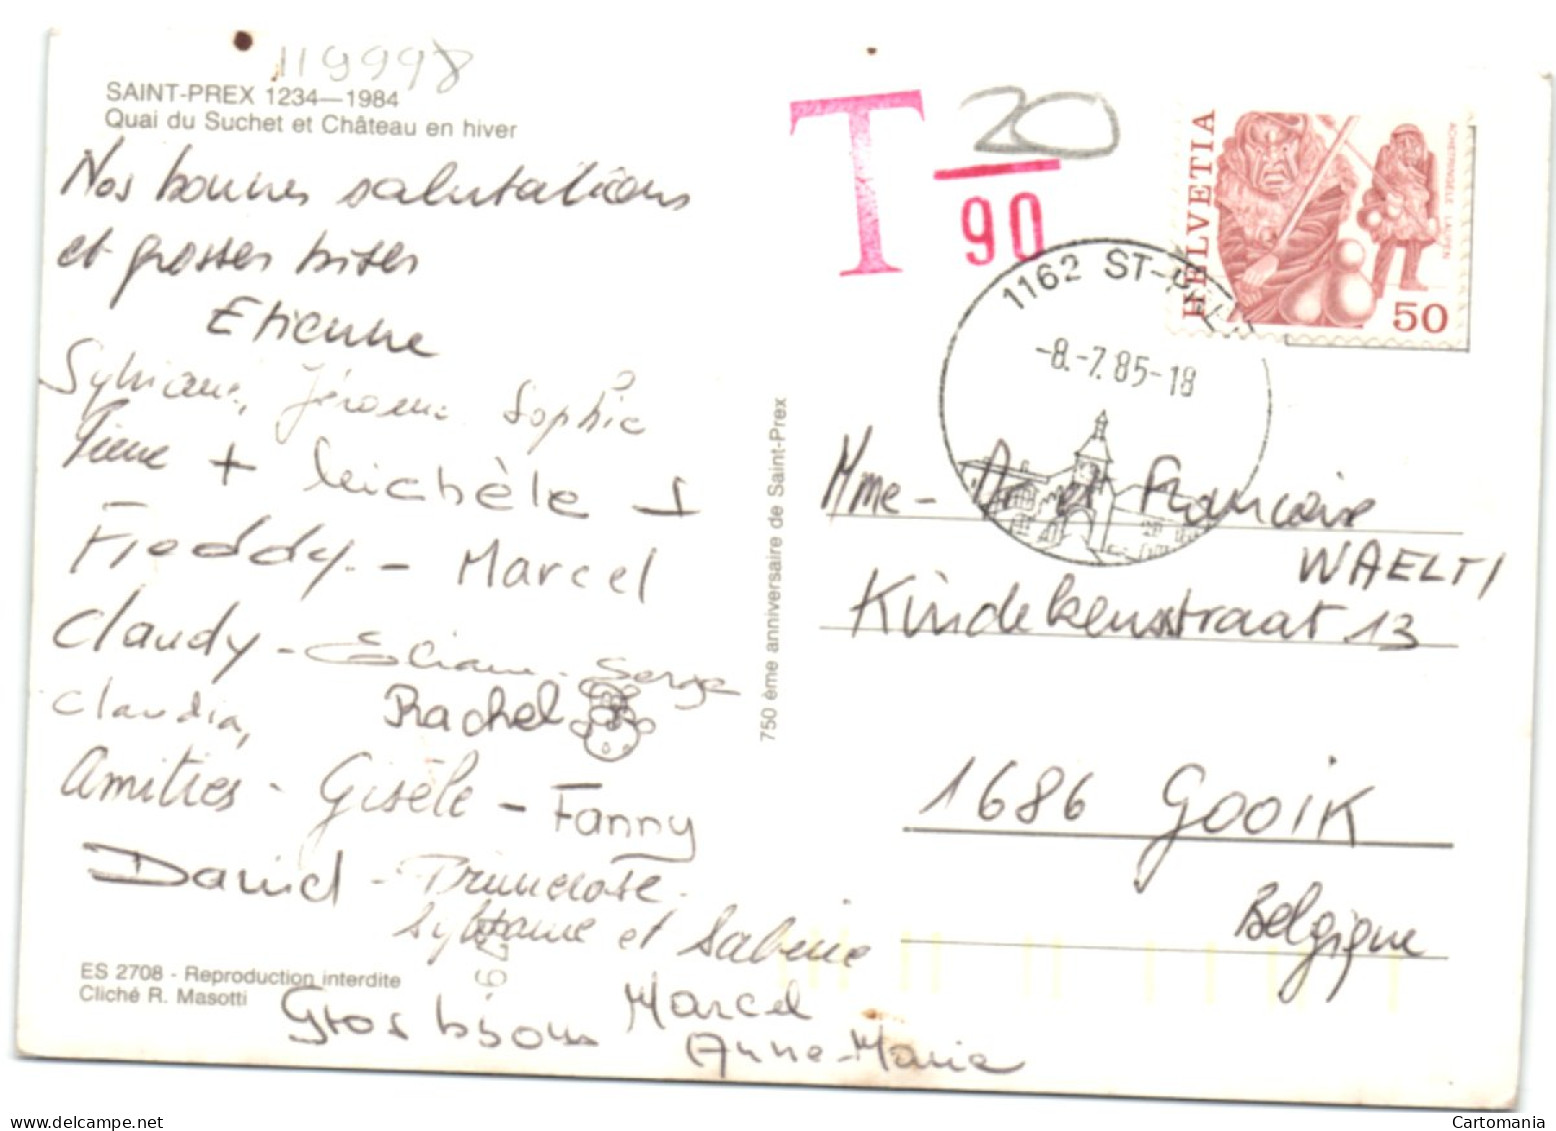 119998
SAINT-PREX 1234—1984
Quai du Suchet et Château en hiver
Nos bonnes salutations
et grosses bises
Etienne
Sylviane, Jérome Sophie
Pierre + Michèle
Freddy - Marcel
Claudy - Eliane - Serge
Claudia, Rachel
Amitiés - Gisèle - Fanny
David - Primerose
Sylviane et Sabine
Gros bisous Marcel
Anne-Marie
ES 2708 - Reproduction interdite
Cliché R. Masotti
750 ème anniversaire de Saint-Prex
T 20
90
HELVETIA
ACHETRINGELE LAUPEN
50
1162 ST-PREX
-8.-7.85-18
Mme - Dr et Françoise
WAELTI
Kindekensstraat 13
1686 Gooik
Belgique
Cartomania